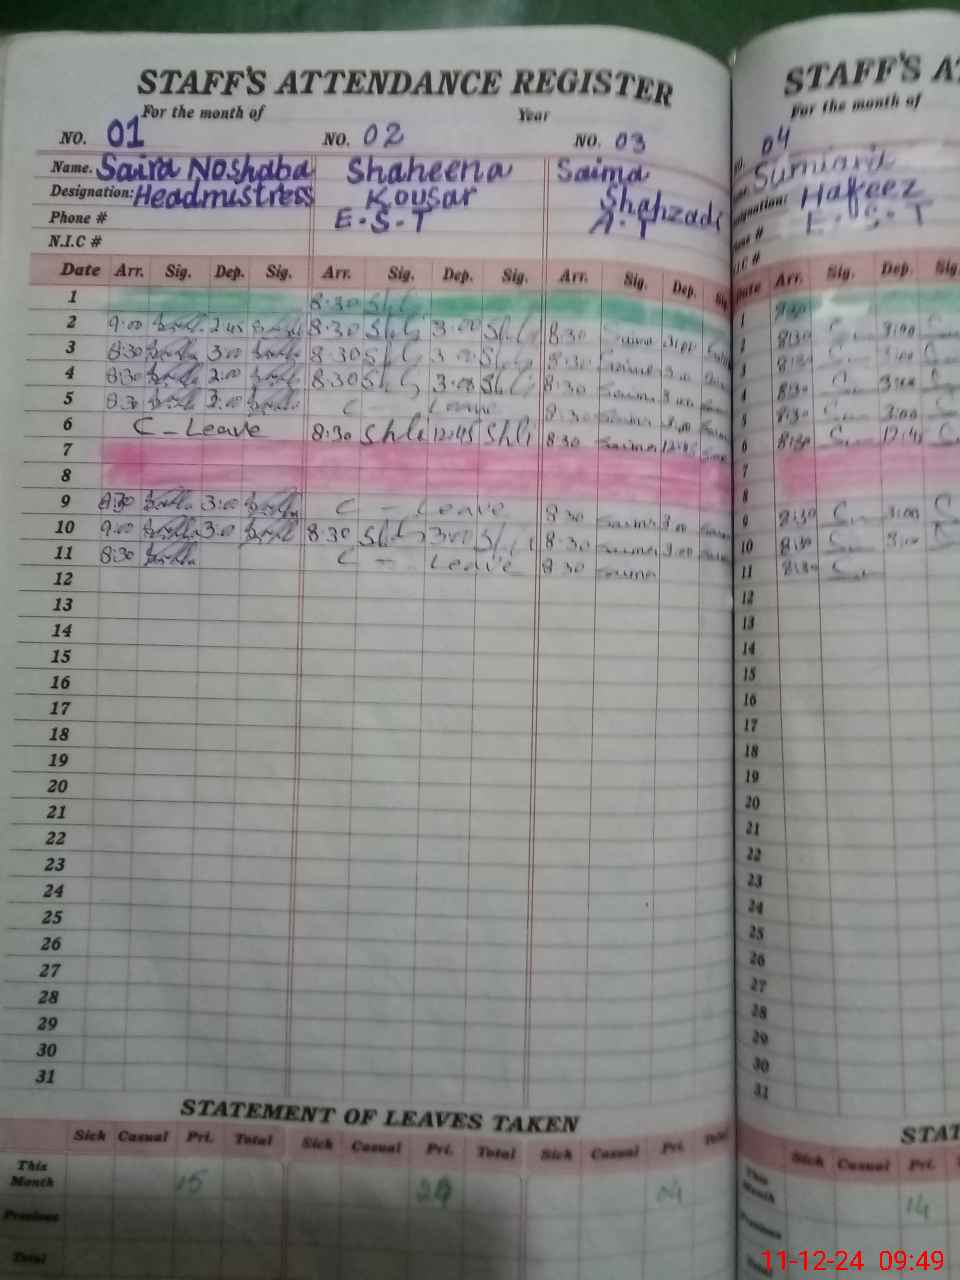 STAFF'S ATTENDANCE REGISTER
For the month of Year
NO. 01 NO. 02 NO. 03
Name. Saira Noshaba Shaheena Saima
Designation: Headmistress Kousar Shahzadi
Phone # E.S.T A.T
N.I.C #
Date Arr. Sig. Dep. Sig. Arr. Sig. Dep. Sig. Arr. Sig. Dep. Sig
1 8:30
2 9:00 2:45 8:30 3:00 8:30 3:00
3 8:30 3:00 8:30 3:00 8:30 3:00
4 8:30 2:00 8:30 3:00 8:30 3:00
5 8:30 3:00 C - Leave 8:30 3:00
6 C - Leave 8:30 12:45 8:30 12:45
7
8
9 8:30 3:00 C - Leave 8:30 3:00
10 9:00 3:00 8:30 3:00 8:30 3:00
11 8:30 C - Leave 8:30
12
13
14
15
16
17
18
19
20
21
22
23
24
25
26
27
28
29
30
31
STATEMENT OF LEAVES TAKEN
Sick Casual Pri. Total Sick Casual Pri. Total Sick Casual Pri. Total
This Month 15 04
Previous
Total
STAFF'S A
For the month of
04
Hafeez
E.S.T
Date Arr. Sig. Dep. Sig.
1 8:30
2 8:30 3:00
3 8:30 3:00
4 8:30 3:00
5 8:30 3:00
6 8:30 12:45
7
8
9 8:30 3:00
10 8:30 3:00
11 8:30
12
13
14
15
16
17
18
19
20
21
22
23
24
25
26
27
28
29
30
31
STAT
Sick Casual Pri.
This Month 14
Previous
Total
11-12-24 09:49